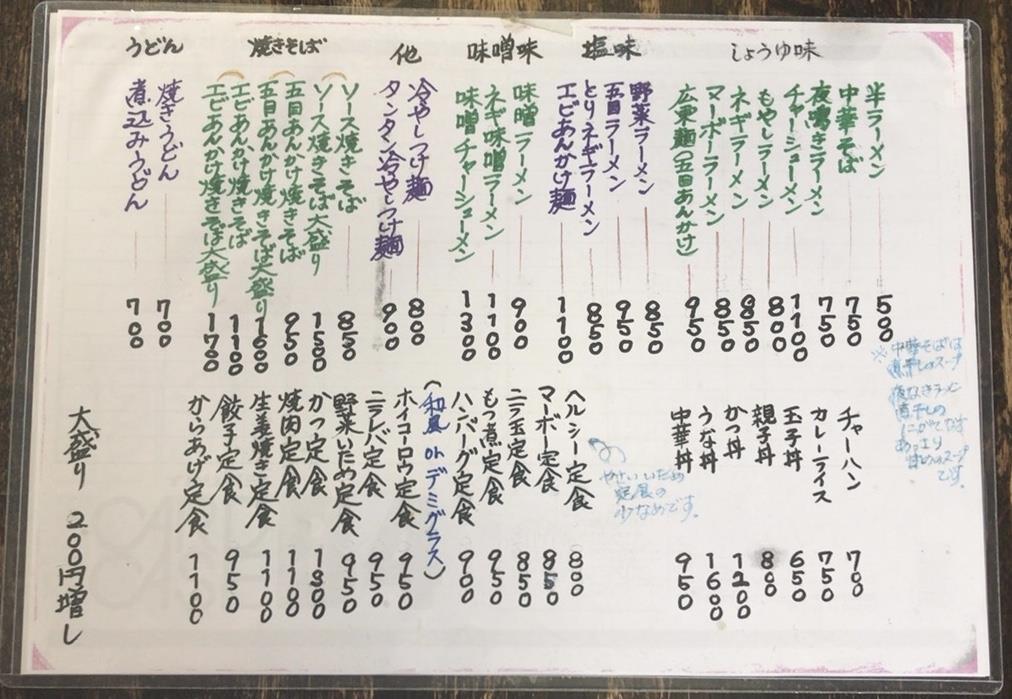 しょうゆ味
半ラーメン 500
中華そば 750
夜鳴きラーメン 750
チャーシューメン 1100
もやしラーメン 800
ネギラーメン 850
マーボーラーメン 850
広東麺(五目あんかけ) 950
※中華そばは
煮干しのスープ
夜なきラーメン
煮干しの
にがてな方
あっさり
スープ
です。
塩味
野菜ラーメン 850
五目ラーメン 950
とりネギラーメン 850
エビあんかけ麺 1100
味噌味
味噌ラーメン 900
ネギ味噌ラーメン 1100
味噌チャーシューメン 1300
他
冷やしつけ麺 800
タンタン冷やしつけ麺 900
焼きそば
ソース焼きそば 850
ソース焼きそば大盛り 1500
五目あんかけ焼きそば 950
五目あんかけ焼きそば大盛り 1600
エビあんかけ焼きそば 1100
エビあんかけ焼きそば大盛り 1700
うどん
焼きうどん 700
煮込みうどん 700
チャーハン 700
カレーライス 750
玉子丼 650
親子丼 800
かつ丼 1200
うな丼 1600
中華丼 950
ヘルシー定食 800
やさいいため
定食の
少なめです。
マーボー定食 850
ニラ玉定食 850
もつ煮定食 950
ハンバーグ定食 900
(和風 or デミグラス)
ホイコーロウ定食 950
ニラレバ定食 950
野菜いため定食 950
かつ定食 1300
焼肉定食 1100
生姜焼き定食 1100
餃子定食 950
からあげ定食 1100
大盛り 200円増し